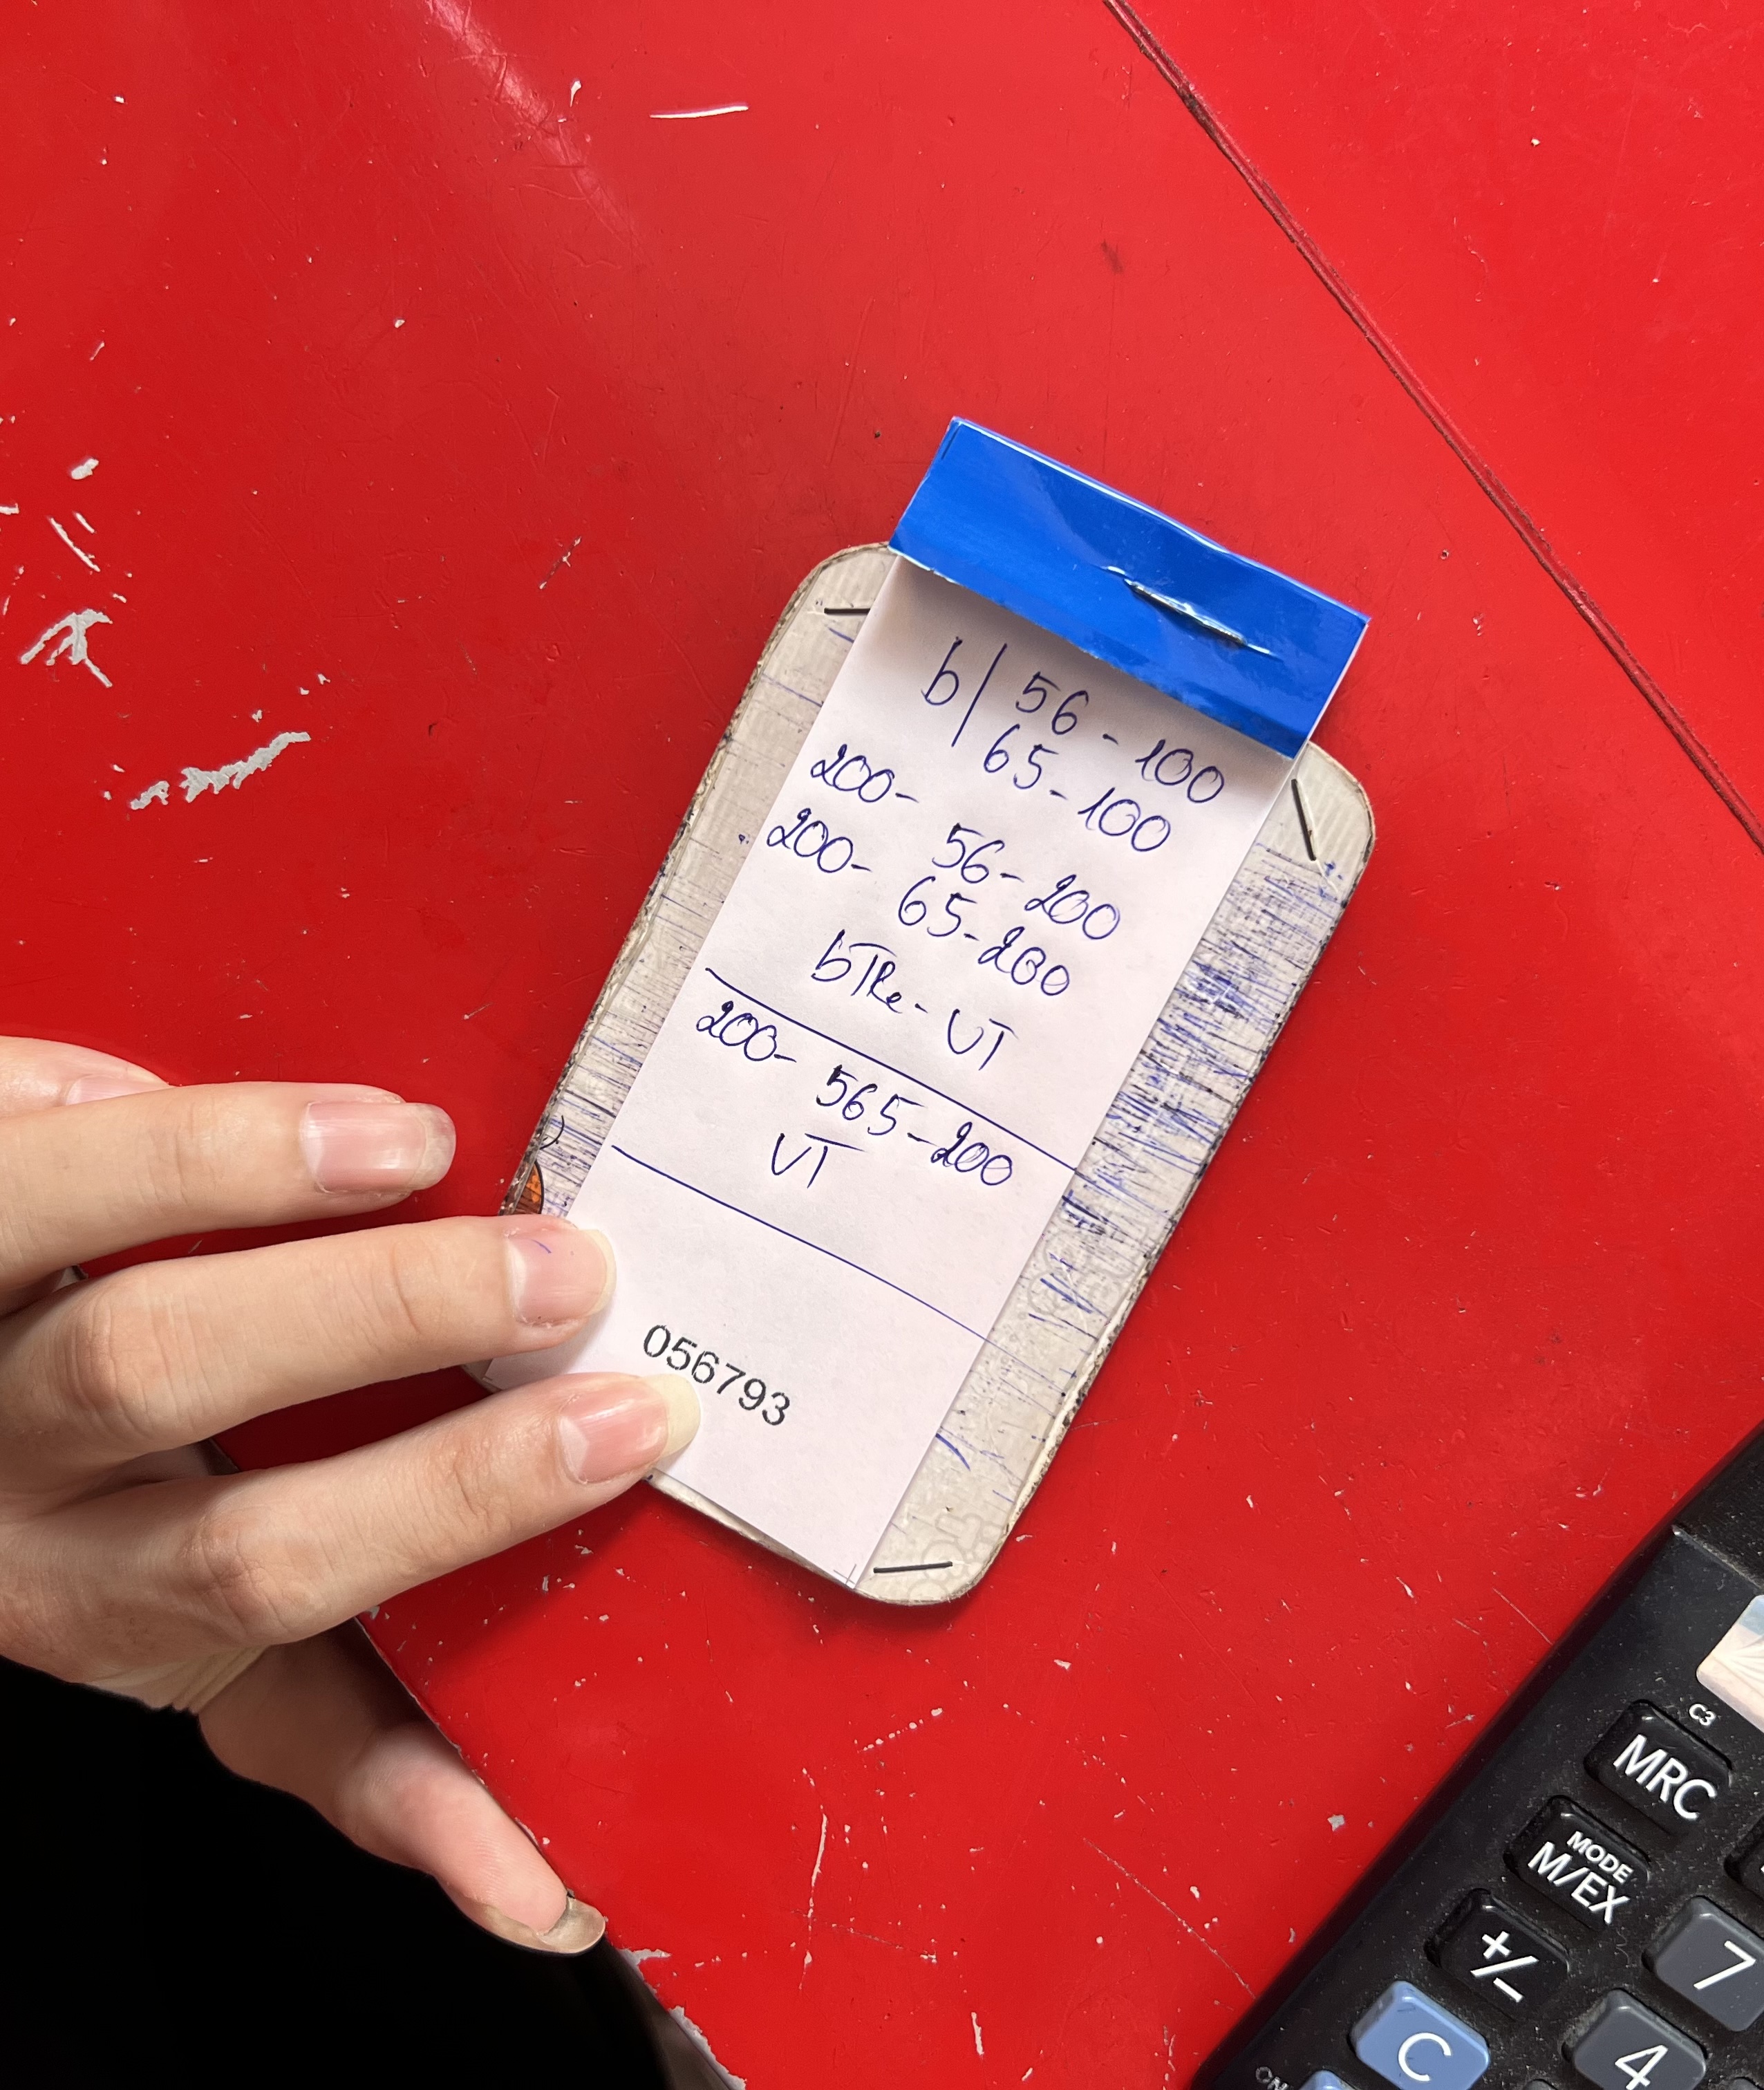 b| 56 - 100
65 - 100
200- 56 - 200
200- 65 - 200
bTRe - VT
200- 565 - 200
VT
056793
C3
MRC
MODE
M/EX
+/-
7
C
4
ON